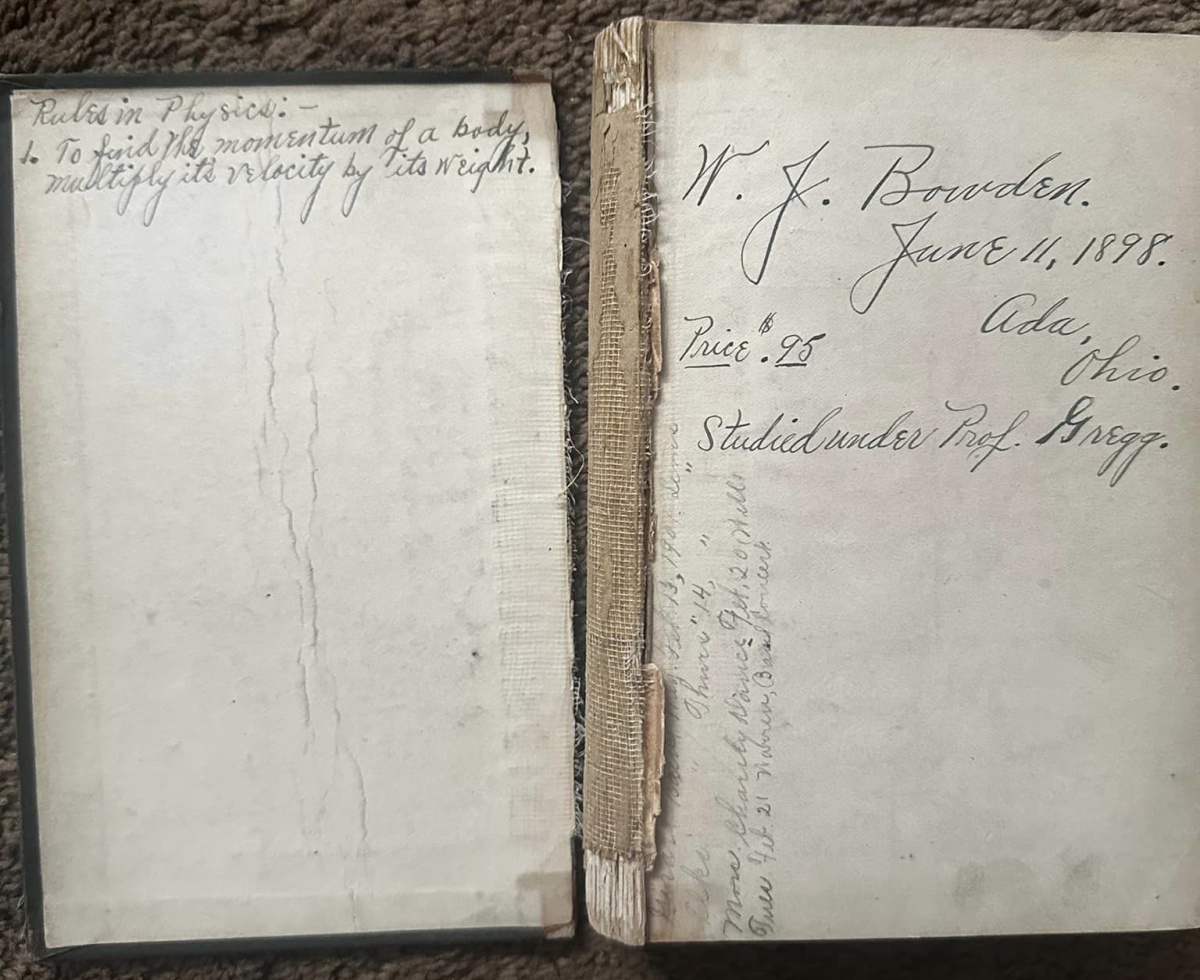 Rules in Physics: –
1. To find the momentum of a body,
multiply its velocity by its weight.
W. J. Bowden.
June 11, 1898.
Ada,
Ohio.
Price $.95
Studied under Prof. Gregg.
Feb. 13,
" Thurs " 14, "
Mon. Charity Dance Feb. 20
Tues Feb. 21 Warren, Band Concert